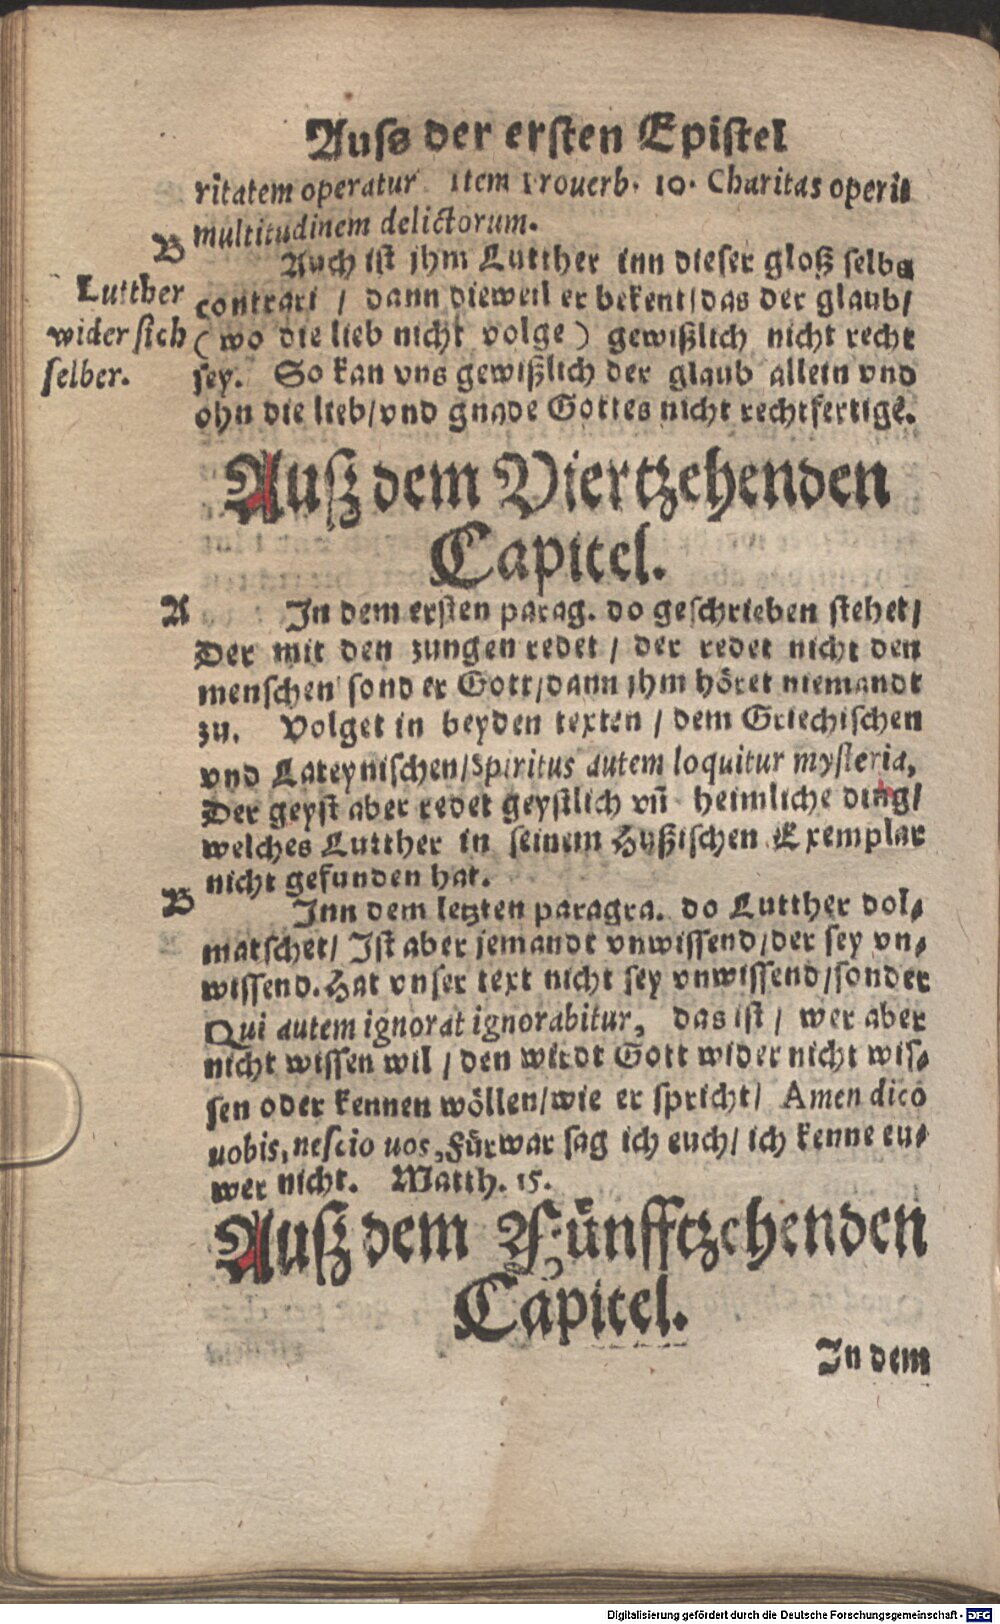 Auſs der erſten Epiſtel
ritatem operatur Item Prouerb. 10. Charitas operit
multitudinem delictorum.
B
Auch iſt jhm Lutther inn dieſer gloß ſelbs
Lutther
contrari / dann dieweil er bekent/das der glaub/
wider ſich
(wo die lieb nicht volge) gewißlich nicht recht
ſelber.
ſey. So kan vns gewißlich der glaub allein vnd
ohn die lieb/vnd gnade Gottes nicht rechtfertigē.
Auſz dem Viertzehenden
Capitel.
A
In dem erſten parag. do geſchrieben ſtehet/
Der mit den zungen redet / der redet nicht den
menſchen ſonder Gott/dann jhm höret niemandt
zu. Volget in beyden texten / dem Griechiſchen
vnd Lateyniſchen/Spiritus autem loquitur myſteria,
Der geyſt aber redet geyſtlich vñ heimliche ding/
welches Lutther in ſeinem Hußiſchen Exemplar
nicht gefunden hat.
B
Inn dem letzten paragra. do Lutther dol⸗
matſchet/ Iſt aber jemandt vnwiſſend/der ſey vn⸗
wiſſend. Hat vnſer text nicht ſey vnwiſſend/ſonder
Qui autem ignorat ignorabitur, das iſt / wer aber
nicht wiſſen wil / den wirdt Gott wider nicht wiſ⸗
ſen oder kennen wöllen/wie er ſpricht/ Amen dico
uobis, neſcio uos, Fürwar ſag ich euch/ ich kenne eu⸗
wer nicht. Matth. 15.
Auſz dem Fünfftzehenden
Capitel.
In dem
Digitalisierung gefördert durch die Deutsche Forschungsgemeinschaft - DFG